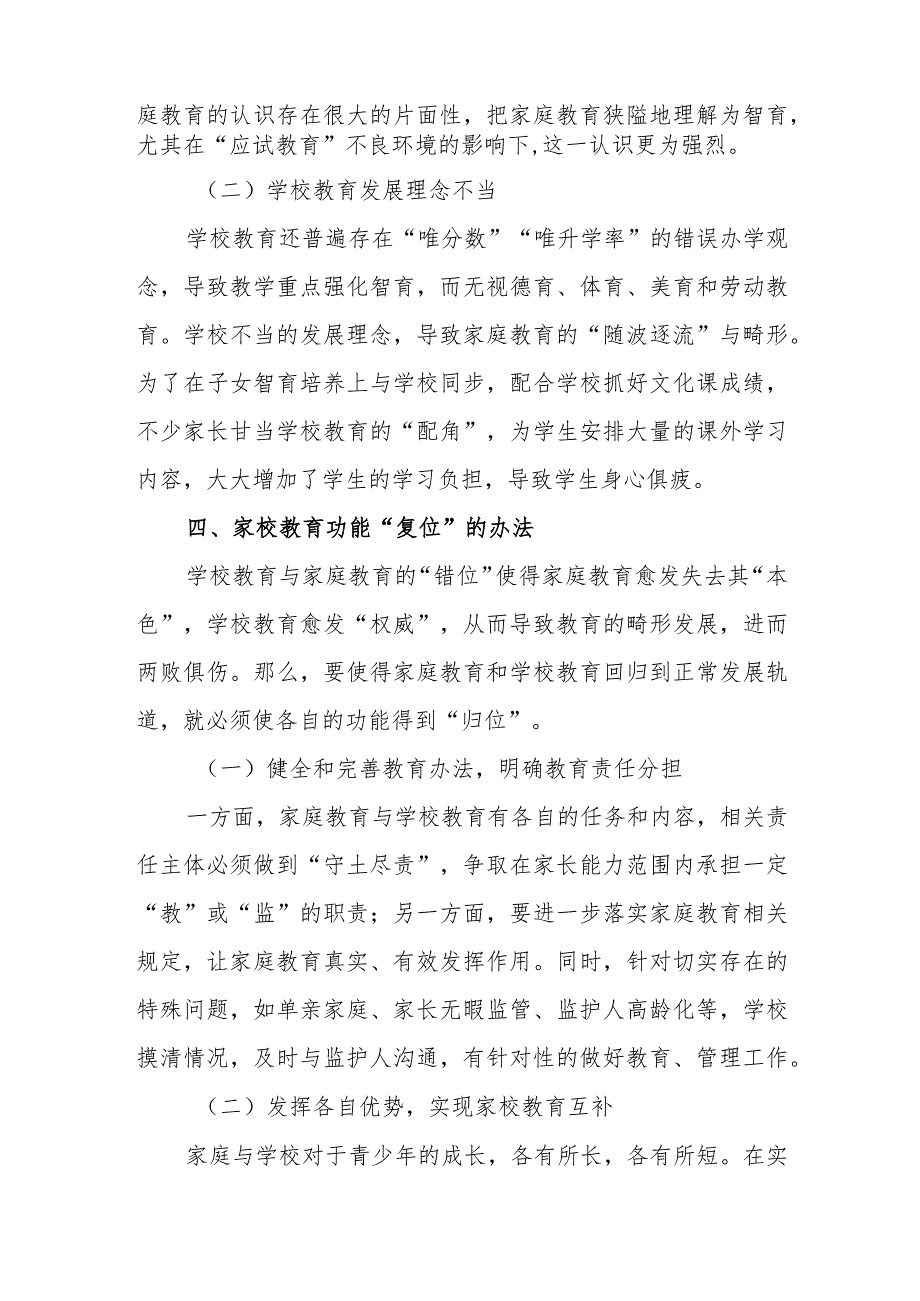 庭教育的认识存在很大的片面性，把家庭教育狭隘地理解为智育，
尤其在“应试教育”不良环境的影响下,这一认识更为强烈。
（二）学校教育发展理念不当
学校教育还普遍存在“唯分数”“唯升学率”的错误办学观
念，导致教学重点强化智育，而无视德育、体育、美育和劳动教
育。学校不当的发展理念，导致家庭教育的“随波逐流”与畸形。
为了在子女智育培养上与学校同步，配合学校抓好文化课成绩，
不少家长甘当学校教育的“配角”，为学生安排大量的课外学习
内容，大大增加了学生的学习负担，导致学生身心俱疲。
四、家校教育功能“复位”的办法
学校教育与家庭教育的“错位”使得家庭教育愈发失去其“本
色”，学校教育愈发“权威”，从而导致教育的畸形发展，进而
两败俱伤。那么，要使得家庭教育和学校教育回归到正常发展轨
道，就必须使各自的功能得到“归位”。
（一）健全和完善教育办法，明确教育责任分担
一方面，家庭教育与学校教育有各自的任务和内容，相关责
任主体必须做到“守土尽责”，争取在家长能力范围内承担一定
“教”或“监”的职责；另一方面，要进一步落实家庭教育相关
规定，让家庭教育真实、有效发挥作用。同时，针对切实存在的
特殊问题，如单亲家庭、家长无暇监管、监护人高龄化等，学校
摸清情况，及时与监护人沟通，有针对性的做好教育、管理工作。
（二）发挥各自优势，实现家校教育互补
家庭与学校对于青少年的成长，各有所长，各有所短。在实